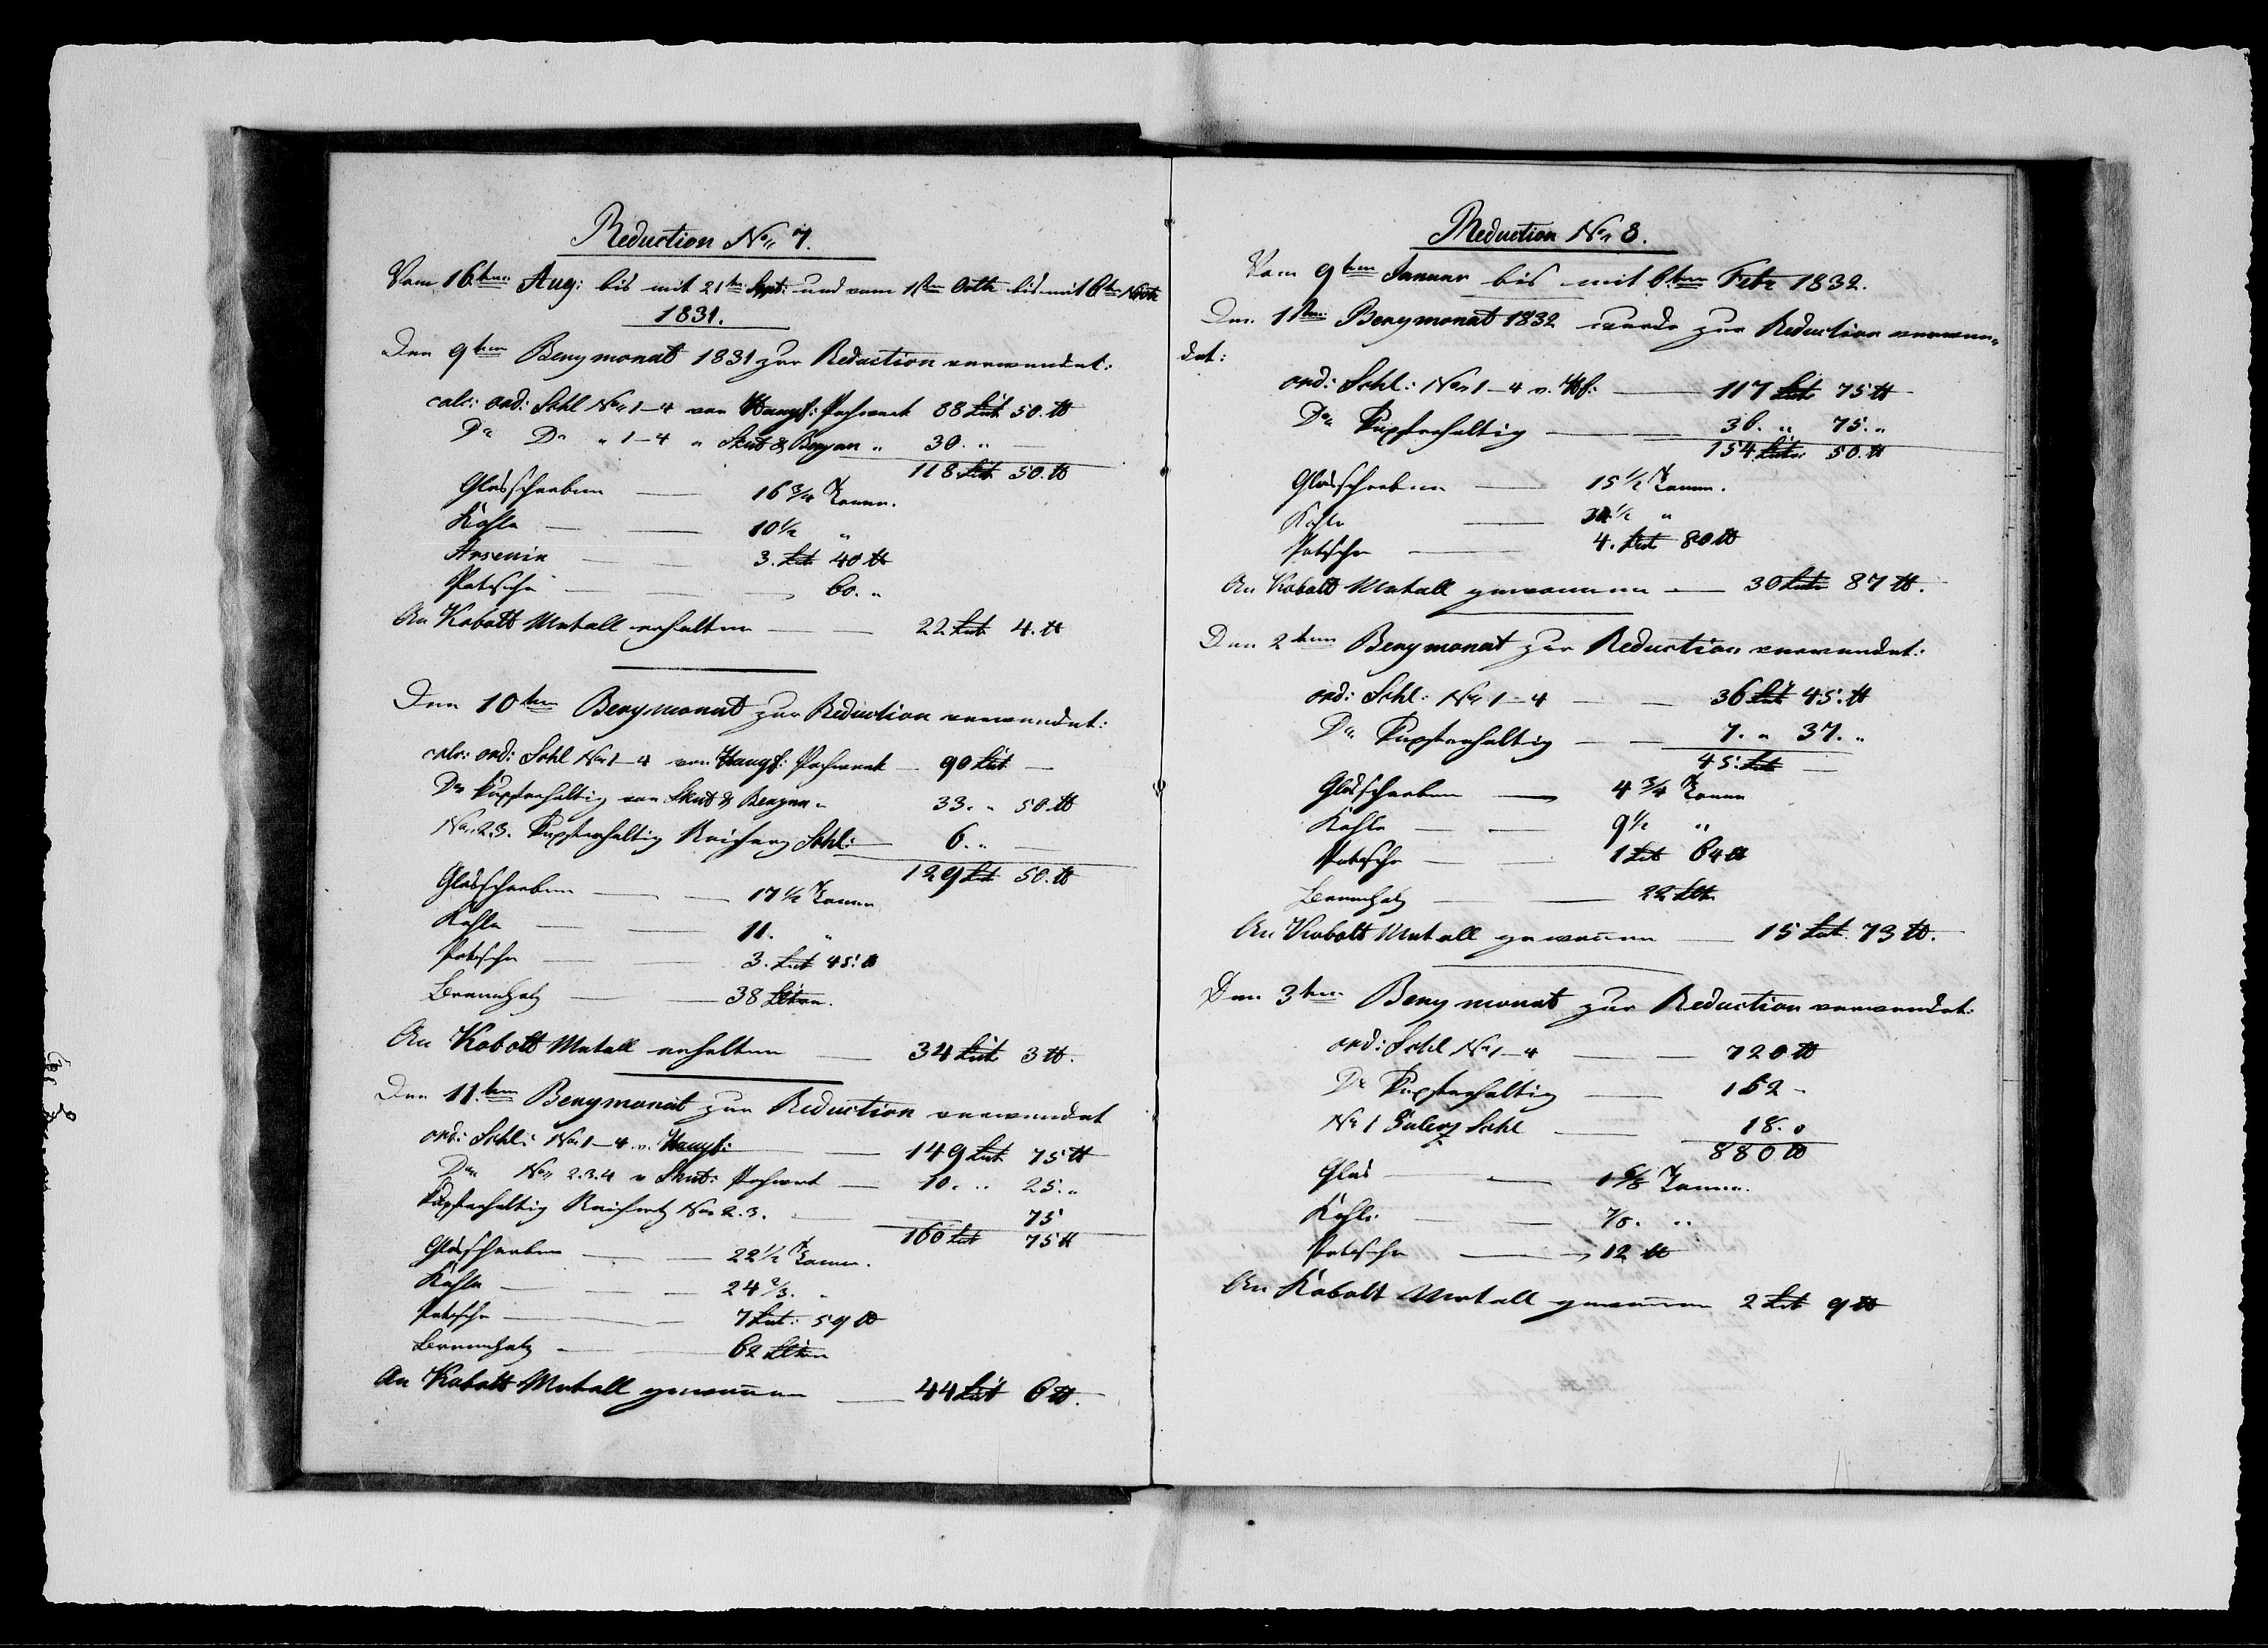 Reduction No. 7.
Vom 16ten Aug: bis mit 21ten Sept: und vom 1sten Octb bis mit 16ten Novb
1831.
Den 9ten Bergmonat 1831 zur Reduction verwendet:
calc: ord: Schl No. 1–4 von Haugf: Pochwerk 88 Cut 50. ℔
Do Do " 1–4 " Skut & Bergan " 30. " —
118 Cut 50. ℔
Glasscherben — 16 3/4 Tonnen.
Kohle — — 10 1/2 "
Arsenik — — 3. Cut 40 ℔
Potasche — — 60. "
An Kobolt Metall erhalten — — 22 Cut 4. ℔
Den 10ten Bergmonat zur Reduction verwendet:
calc: ord: Schl No. 1–4 von Haugf: Pochwerk — 90 Cut —
Do Kupferhaltig von Skut & Bergan " 33. " 50. ℔
No. 2.3. Kupferhaltig Reicherz Schl: — 6. " —
129 Cut 50. ℔
Glasscherben — — 17 1/2 Tonnen
Kohle — — 11. "
Potasche — — 3. Cut 45. ℔
Brennholz — — 38
An Kobolt Metall erhalten — 34 Cut 3 ℔.
Den 11ten Bergmonat zur Reduction verwendet
ord: Schl: No. 1–4 v. Haugf: — 149 Cut 75 ℔
Do No. 2.3.4 v Skut: Pochwerk — 10. " 25. "
Kupferhaltig Reicherz No. 2.3. — — 75
160 Cut 75 ℔
Glasscherben — — 22 1/2 Tonnen.
Kohle — — 24 2/3. "
Potasche — — 7 Cut: 59 ℔
Brennholz — — 62
An Kobolt Metall gewonnen — 44 Cut 6 ℔.
Reduction No. 8.
Vom 9ten Januar bis mit 6ten Febr 1832.
Den 1sten Bergmonat 1832 wurde zur Reduction verwen„
det:
ord: Schl: No. 1–4 v. Hf: — 117 Cut 75 ℔
Do Kupferhaltig — 36. " 75. "
154 Cut 50. ℔
Glasscherben — 15 1/2 Tonnen.
Kohle — 1/2 "
Potasche — 4. Cut 80 ℔
An Kobolt Metall gewonnen — 30 Cut 87 ℔.
Den 2ten Bergmonat zur Reduction verwendet:
ord: Schl: No. 1–4 — — 36 Cut 45. ℔
Do Kupferhaltig — — 7. " 37. "
45. Cut —
Glasscherben — 4 3/4 Tonnen
Kohle — — 9 1/2 "
Potasche — — 1 Cut 64 ℔
Brennholz — — 22
An Kobolt Metall gewonnen — 15 Cut 73 ℔.
Den 3ten Bergmonat zur Reduction verwendet:
ord: Schl No. 1–4 — — 720 ℔
Do Kupferhaltig — 152 –
No 1 Schl — 18. "
880 ℔
Glas — — 1 5/8 Tonnen.
Kohle — — 7/8. "
Potasche — 12 ℔
An Kobolt Metall gewonnen 2 Cut 9 ℔